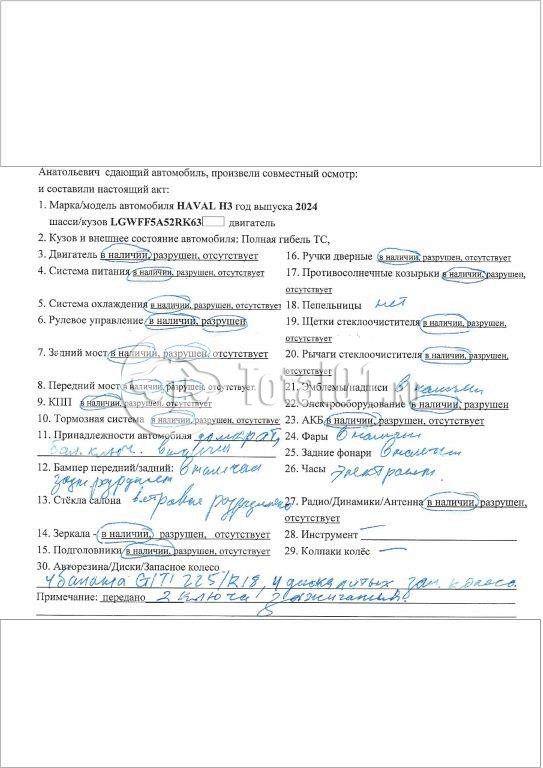 Анатольевич сдающий автомобиль, произвели совместный осмотр:
и составили настоящий акт:
1. Марка/модель автомобиля HAVAL H3 год выпуска 2024
шасси/кузов LGWFF5A52RK63 двигатель
2. Кузов и внешнее состояние автомобиля: Полная гибель ТС,
3. Двигатель в наличии, разрушен, отсутствует
4. Система питания в наличии, разрушен, отсутствует
5. Система охлаждения в наличии, разрушен, отсутствует
6. Рулевое управление, в наличии, разрушен
7. Задний мост в наличии, разрушен, отсутствует
8. Передний мост в наличии, разрушен, отсутствует.
9. КПП в наличии, разрушен, отсутствует
10. Тормозная система в наличии, разрушен, отсутствует
11. Принадлежности автомобиля домкрат,
бал. ключ. в наличии
12. Бампер передний/задний: в наличии
задн разрушен
13. Стёкла салона ветровое разрушено
14. Зеркала - в наличии, разрушен, отсутствует
15. Подголовники в наличии, разрушен, отсутствует
16. Ручки дверные в наличии, разрушен,
отсутствует
17. Противосолнечные козырьки в наличии, разрушен,
отсутствует
18. Пепельницы нет
19. Щетки стеклоочистителя в наличии, разрушен,
отсутствует
20. Рычаги стеклоочистителя в наличии, разрушен,
отсутствует
21. Эмблемы/надписи в наличии
22. Электрооборудование в наличии, разрушен
23. АКБ в наличии, разрушен, отсутствует
24. Фары в наличии
25. Задние фонари в наличии
26. Часы электрон.
27. Радио/Динамики/Антенна в наличии, разрушен,
отсутствует
28. Инструмент —
29. Колпаки колёс —
30. Авторезина/Диски/Запасное колесо
4 балона GITI 225/R18, 4 диска литых зап. колесо.
Примечание: передано 2 ключа зажигания.
Total01.ru